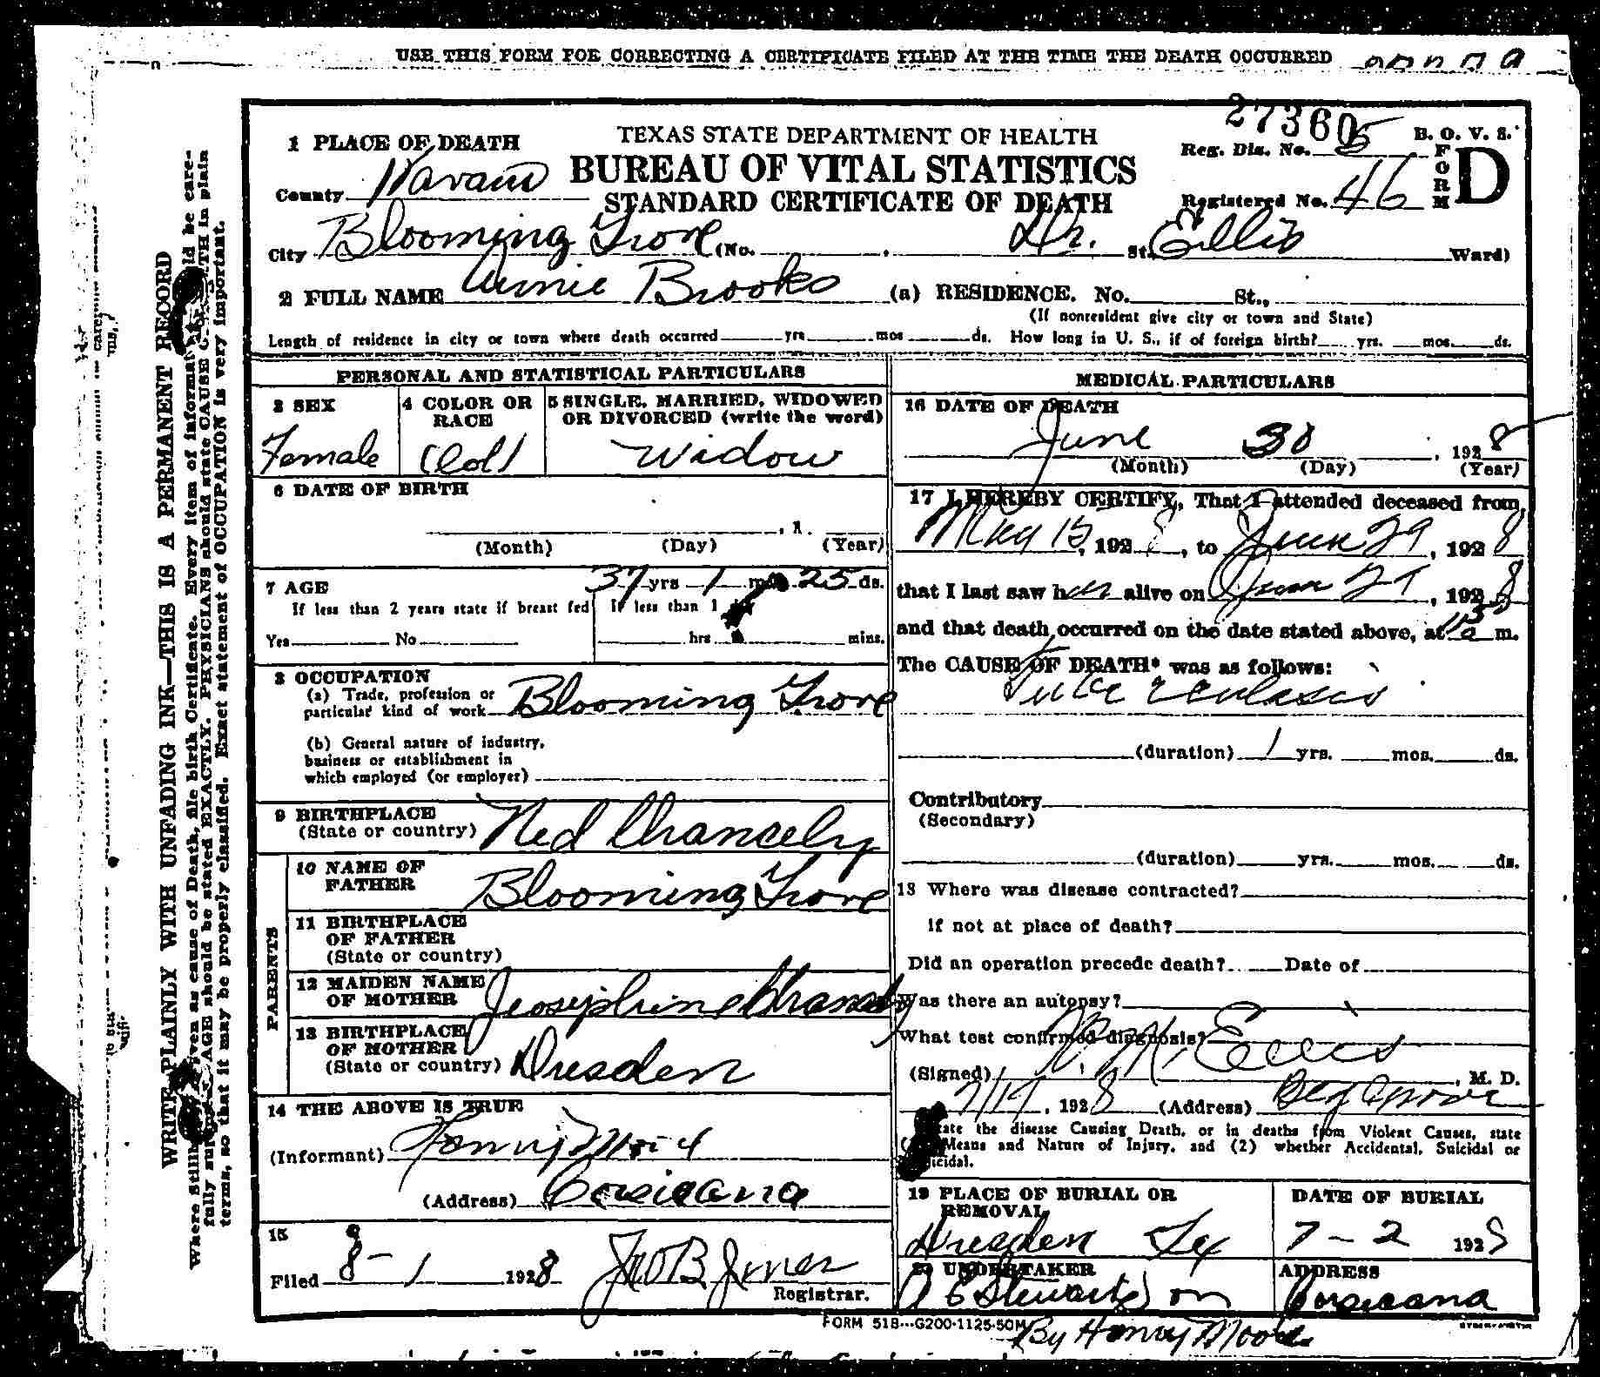 USE THIS FORM FOR CORRECTING A CERTIFICATE FILED AT THE TIME THE DEATH OCCURRED
27360
1 PLACE OF DEATH
TEXAS STATE DEPARTMENT OF HEALTH
B. O. V. S.
Reg. Dis. No. 5
County Navarro
BUREAU OF VITAL STATISTICS
FORM D
STANDARD CERTIFICATE OF DEATH
Registered No. 46
City Blooming Grove (No. , Dr. St. Ellis Ward)
2 FULL NAME Annie Brooks (a) RESIDENCE. No. St.,
(If nonresident give city or town and State)
Length of residence in city or town where death occurred yrs. mos. ds. How long in U. S., if of foreign birth? yrs. mos. ds.
PERSONAL AND STATISTICAL PARTICULARS
3 SEX
Female
4 COLOR OR RACE
Col
5 SINGLE, MARRIED, WIDOWED OR DIVORCED (write the word)
Widow
6 DATE OF BIRTH
, 1
(Month) (Day) (Year)
7 AGE 37 yrs 1 mos 25 ds.
If less than 2 years state if breast fed
Yes No
If less than 1
hrs. mins.
8 OCCUPATION
(a) Trade, profession or
particular kind of work Blooming Grove
(b) General nature of industry,
business or establishment in
which employed (or employer)
9 BIRTHPLACE
(State or country) Ned Chancely
PARENTS
10 NAME OF
FATHER Blooming Grove
11 BIRTHPLACE
OF FATHER
(State or country)
12 MAIDEN NAME
OF MOTHER Jeosephine
13 BIRTHPLACE
OF MOTHER
(State or country) Dresden
14 THE ABOVE IS TRUE
(Informant)
(Address) Corsicana
15
Filed 8-1 1928
Registrar.
MEDICAL PARTICULARS
16 DATE OF DEATH
June 30, 1928
(Month) (Day) (Year)
17 I HEREBY CERTIFY, That I attended deceased from
May 15, 1928, to June 29, 1928
that I last saw her alive on June 29, 1928
and that death occurred on the date stated above, at m.
The CAUSE OF DEATH* was as follows:
Tuberculosis
(duration) 1 yrs. mos. ds.
Contributory
(Secondary)
(duration) yrs. mos. ds.
18 Where was disease contracted?
if not at place of death?
Did an operation precede death? Date of
Was there an autopsy?
What test confirmed diagnosis?
(Signed) Ellis, M. D.
7/19, 1928 (Address)
state the disease Causing Death, or in deaths from Violent Causes, state
Means and Nature of Injury, and (2) whether Accidental, Suicidal or
19 PLACE OF BURIAL OR REMOVAL
Dresden Tex
DATE OF BURIAL
7-2 1928
20 UNDERTAKER
ADDRESS
Corsicana
FORM 518---G200-1125-50M
By Henry Moore
WRITE PLAINLY WITH UNFADING INK—THIS IS A PERMANENT RECORD
fully AGE should be stated EXACTLY. PHYSICIANS should state CAUSE in plain
terms, so that it may be properly classified. Exact statement of OCCUPATION is very important.